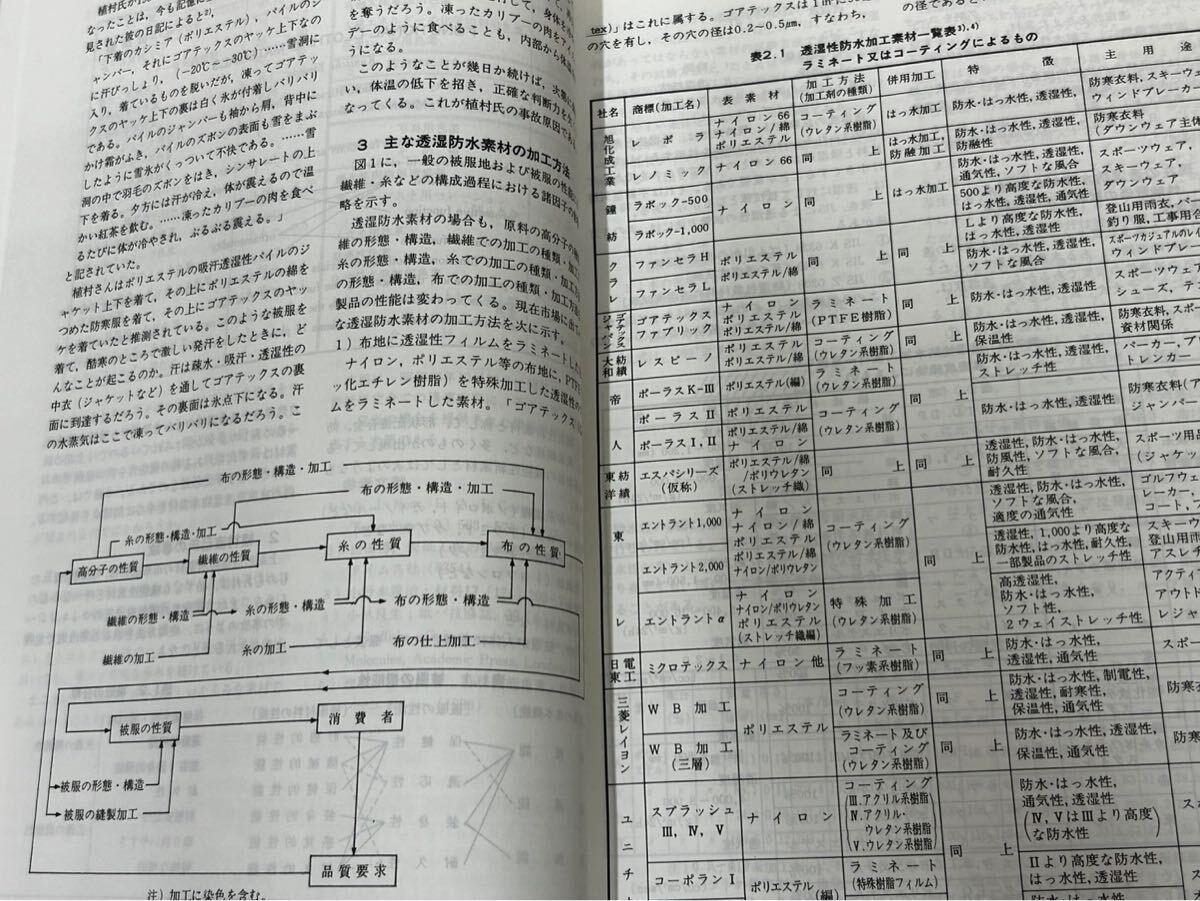 植村氏が1
なったことは，今も記憶に
見された彼の日記によると²⁾，
「下着のカシミア（ポリエステル），パイルのジ
ャンパー，それにゴアテックスのヤッケ上下なの
に汗びっしょり，（－20℃～－30℃）……雪洞に
入り，着ているものを脱いだが，凍ってゴアテッ
クスのヤッケ上下の裏は白く氷が付着しバリバリ
である。パイルのジャンパーも袖から肩，背中に
かけ霜がふき，パイルのズボンの表面も雪をまぶ
したように雪氷がくっついて不快である。……雪
洞の中で羽毛のズボンをはき，シンサレートの上
下を着る。夕方には汗が冷え，体が震えるので温
かい紅茶を飲む。……凍ったカリブーの肉を食べ
るたびに体が冷やされ，ぶるぶる震える。」
と記されていた。
植村さんはポリエステルの吸汗透湿性パイルのジ
ャケット上下を着て，その上にポリエステルの綿を
つめた防寒服を着て，その上にゴアテックスのヤッ
ケを着ていたと推測されている。このような被服を
着て，酷寒のところで激しい発汗をしたときに，ど
んなことが起こるのか。汗は疎水・吸汗・透湿性の
中衣（ジャケットなど）を通してゴアテックスの裏
面に到達するだろう。その裏面は氷点下になる。汗
の水蒸気はここで凍ってバリバリになるだろう。こ
を奪うだろう。凍ったカリブーの肉をアイ
デーのように食べることも，内部から体温
うになる。
このようなことが幾日か続けば，次第に
い，体温の低下を招き，正確な判断力を欠
なってくる。これが植村氏の事故原因であ
3 主な透湿防水素材の加工方法
図1に，一般の被服地および被服の性能
繊維・糸などの構成過程における諸因子の
略を示す。
透湿防水素材の場合も，原料の高分子の
維の形態・構造，繊維での加工の種類・加工
糸の形態・構造，糸での加工の種類・加工方
の形態・構造，布での加工の種類・加工方法
製品の性能は変わってくる。現在市場に出て
な透湿防水素材の加工方法を次に示す。
1）布地に透湿性フィルムをラミネートした
ナイロン，ポリエステル等の布地に，PTF
ッ化エチレン樹脂）を特殊加工した透湿性の
ムをラミネートした素材。「ゴアテックス
布の形態・構造・加工
布の形態・構造・加工
糸の形態・構造・加工
高分子の性質
繊維の性質
糸の性質
布の性質
繊維の形態・構造
糸の形態・構造
布の形態・構造
繊維の加工
糸の加工
布の仕上加工
被服の性質
消費者
被服の形態・構造
被服の縫製加工
品質要求
注）加工に染色を含む。
tex）」はこれに属する。ゴアテックスは1in²に
の穴を有し，その穴の径は0.2～0.5μm，すなわち，
の径であると
表2.1 透湿性防水加工素材一覧表³⁾,⁴⁾
ラミネート又はコーティングによるもの
社名 商標(加工名) 表素材 加工方法(加工剤の種類) 併用加工 特徴 主用途
旭化成工業 レポラ ナイロン66 ナイロン/綿 ポリエステル コーティング(ウレタン系樹脂) はっ水加工 防水・はっ水性，透湿性， 防寒衣料，スキーウ ウィンドブレーカー
レノミック ナイロン66 同上 はっ水加工，防融加工 防水・はっ水性，透湿性，防融性 防寒衣料(ダウンウェア主体
鐘紡 ラボック-500 ナイロン 同上 はっ水加工 防水・はっ水性，透湿性，通気性，ソフトな風合 スポーツウェア， スキーウェア， ダウンウェア
ラボック-1,000 500より高度な防水性，はっ水性，透湿性，通気性
クラレ ファンセラH ポリエステル ポリエステル/綿 同上 同上 Lより高度な防水性，はっ水性，透湿性 登山用雨衣，パー 釣り服，工事用合
ファンセラL 防水・はっ水性，透湿性，ソフトな風合 スポーツカジュアルのレイ ウィンドブレー
ジャパンゴアテックス ゴアテックスファブリック ナイロン ポリエステル ポリエステル/綿 ラミネート(PTFE樹脂) 同上 防水・はっ水性，透湿性 スポーツウェア シューズ，テ
大和紡績 レスピーノ ポリエステル ポリエステル/綿 コーティング(ウレタン系樹脂) 同上 防水・はっ水性，透湿性，保温性 防寒衣料，スポ 資材関係
帝人 ポーラスK-III ポリエステル(編) ラミネート(ウレタン系樹脂) 同上 防水・はっ水性，透湿性，ストレッチ性 パーカー，ブレ トレンカー
ポーラスII ポリエステル コーティング(ウレタン系樹脂) 防水・はっ水性，透湿性 防寒衣料(ア ジャンパー
ポーラスI，II ポリエステル/綿 ナイロン
東洋紡績 エスパシリーズ(仮称) ポリエステル/綿/ポリウレタン(ストレッチ織) 同上 同上 透湿性，防水・はっ水性，防風性，ソフトな風合，耐久性 スポーツ用品 (ジャケッ
東レ エントラント1,000 ナイロン ナイロン/綿 ポリエステル コーティング(ウレタン系樹脂) 同上 透湿性，防水・はっ水性，ソフトな風合，適度の通気性 ゴルフウェ レーカー， コート，
エントラント2,000 ポリエステル/綿 ナイロン/ポリウレタン 透湿性，1,000より高度な防水性，はっ水性，耐久性，一部製品のストレッチ性 スキーウ 登山用雨 アスレチ
エントラントα ナイロン ナイロン/ポリウレタン ポリエステル(ストレッチ織編) 特殊加工(ウレタン系樹脂) 高透湿性，防水・はっ水性，ソフト性，2ウェイストレッチ性 アクティ アウトド レジャ
日東電工 ミクロテックス ナイロン他 ラミネート(フッ素系樹脂) 同上 防水・はっ水性，透湿性，通気性 スポー
三菱レイヨン WB加工 ポリエステル コーティング(ウレタン系樹脂) 同上 防水・はっ水性，制電性，透湿性，耐寒性，保温性，通気性 防寒衣
WB加工(三層) ラミネート及びコーティング(ウレタン系樹脂) 同上 防水・はっ水性，透湿性，保温性，通気性 防寒
ユニチ スプラッシュIII，IV，V ナイロン コーティング(III.アクリル系樹脂 IV.アクリル・ウレタン系樹脂 V.ウレタン系樹脂) 同上 防水・はっ水性，通気性，透湿性(IV，VはIIIより高度な防水性) スポ
コーポランI ポリエステル(編) ラミネート(特殊樹脂フィルム) IIより高度な防水性，はっ水性，透湿性